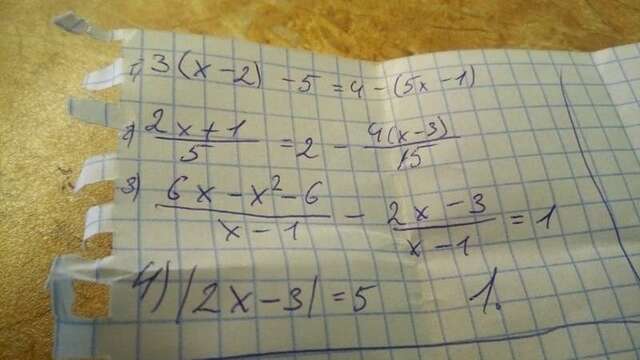 1) 3(x-2) -5 = 4 - (5x-1)
2) (2x+1)/5 = 2 - 4(x-3)/15
3) (6x-x²-6)/(x-1) - (2x-3)/(x-1) = 1
4) |2x-3| = 5 1.